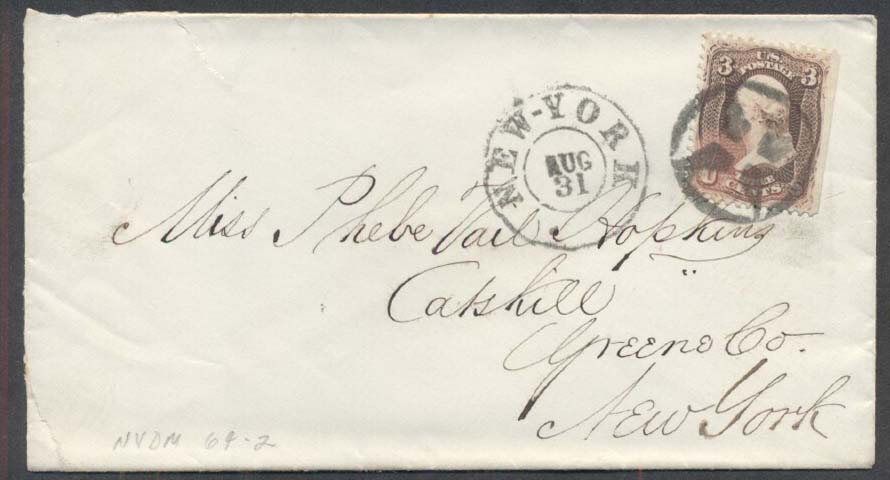 3 U.S. 3
POSTAGE
CENTS
NEW-YORK
AUG
31
Miss Phebe Vail Hopkins
Catskill
Greene Co.
New York
NYDM 69-2